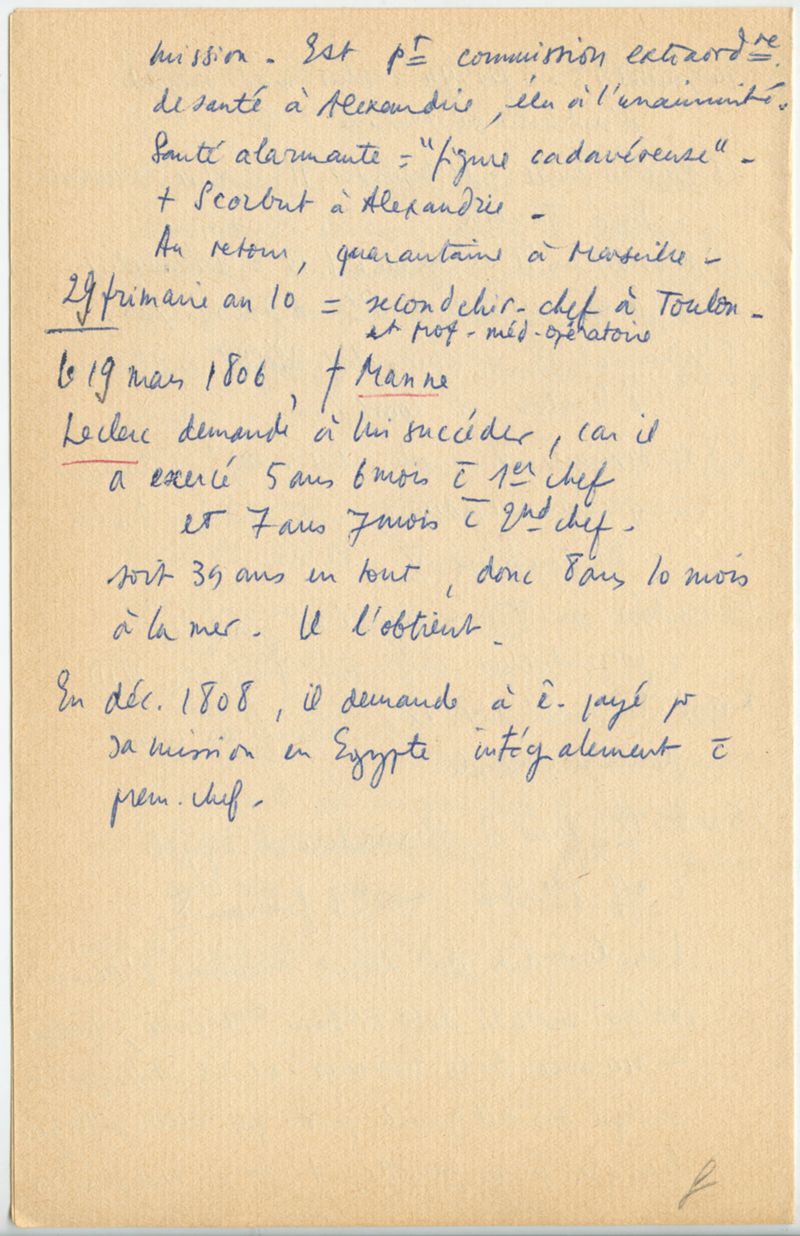 mission - Est pt commission extraordre.
de santé à Alexandrie, élu à l'unanimité.
Santé alarmante = "figure cadavéreuse" -
+ Scorbut à Alexandrie -
Au retour, quarantaine à Marseille -
29 frimaire an 10 = second chir-chef à Toulon -
et prof - méd-opératoire
le 19 mars 1806, † Manne
Leclerc demande à lui succéder, car il
a exercé 5 ans 6 mois c̄ 1er chef
et 7 ans 7 mois c̄ 2nd chef -
soit 39 ans en tout, donc 8 ans 10 mois
à la mer - Il l'obtient -
En déc. 1808, il demande à ê. payé pr
sa mission en Egypte intégralement c̄
prem. chef -